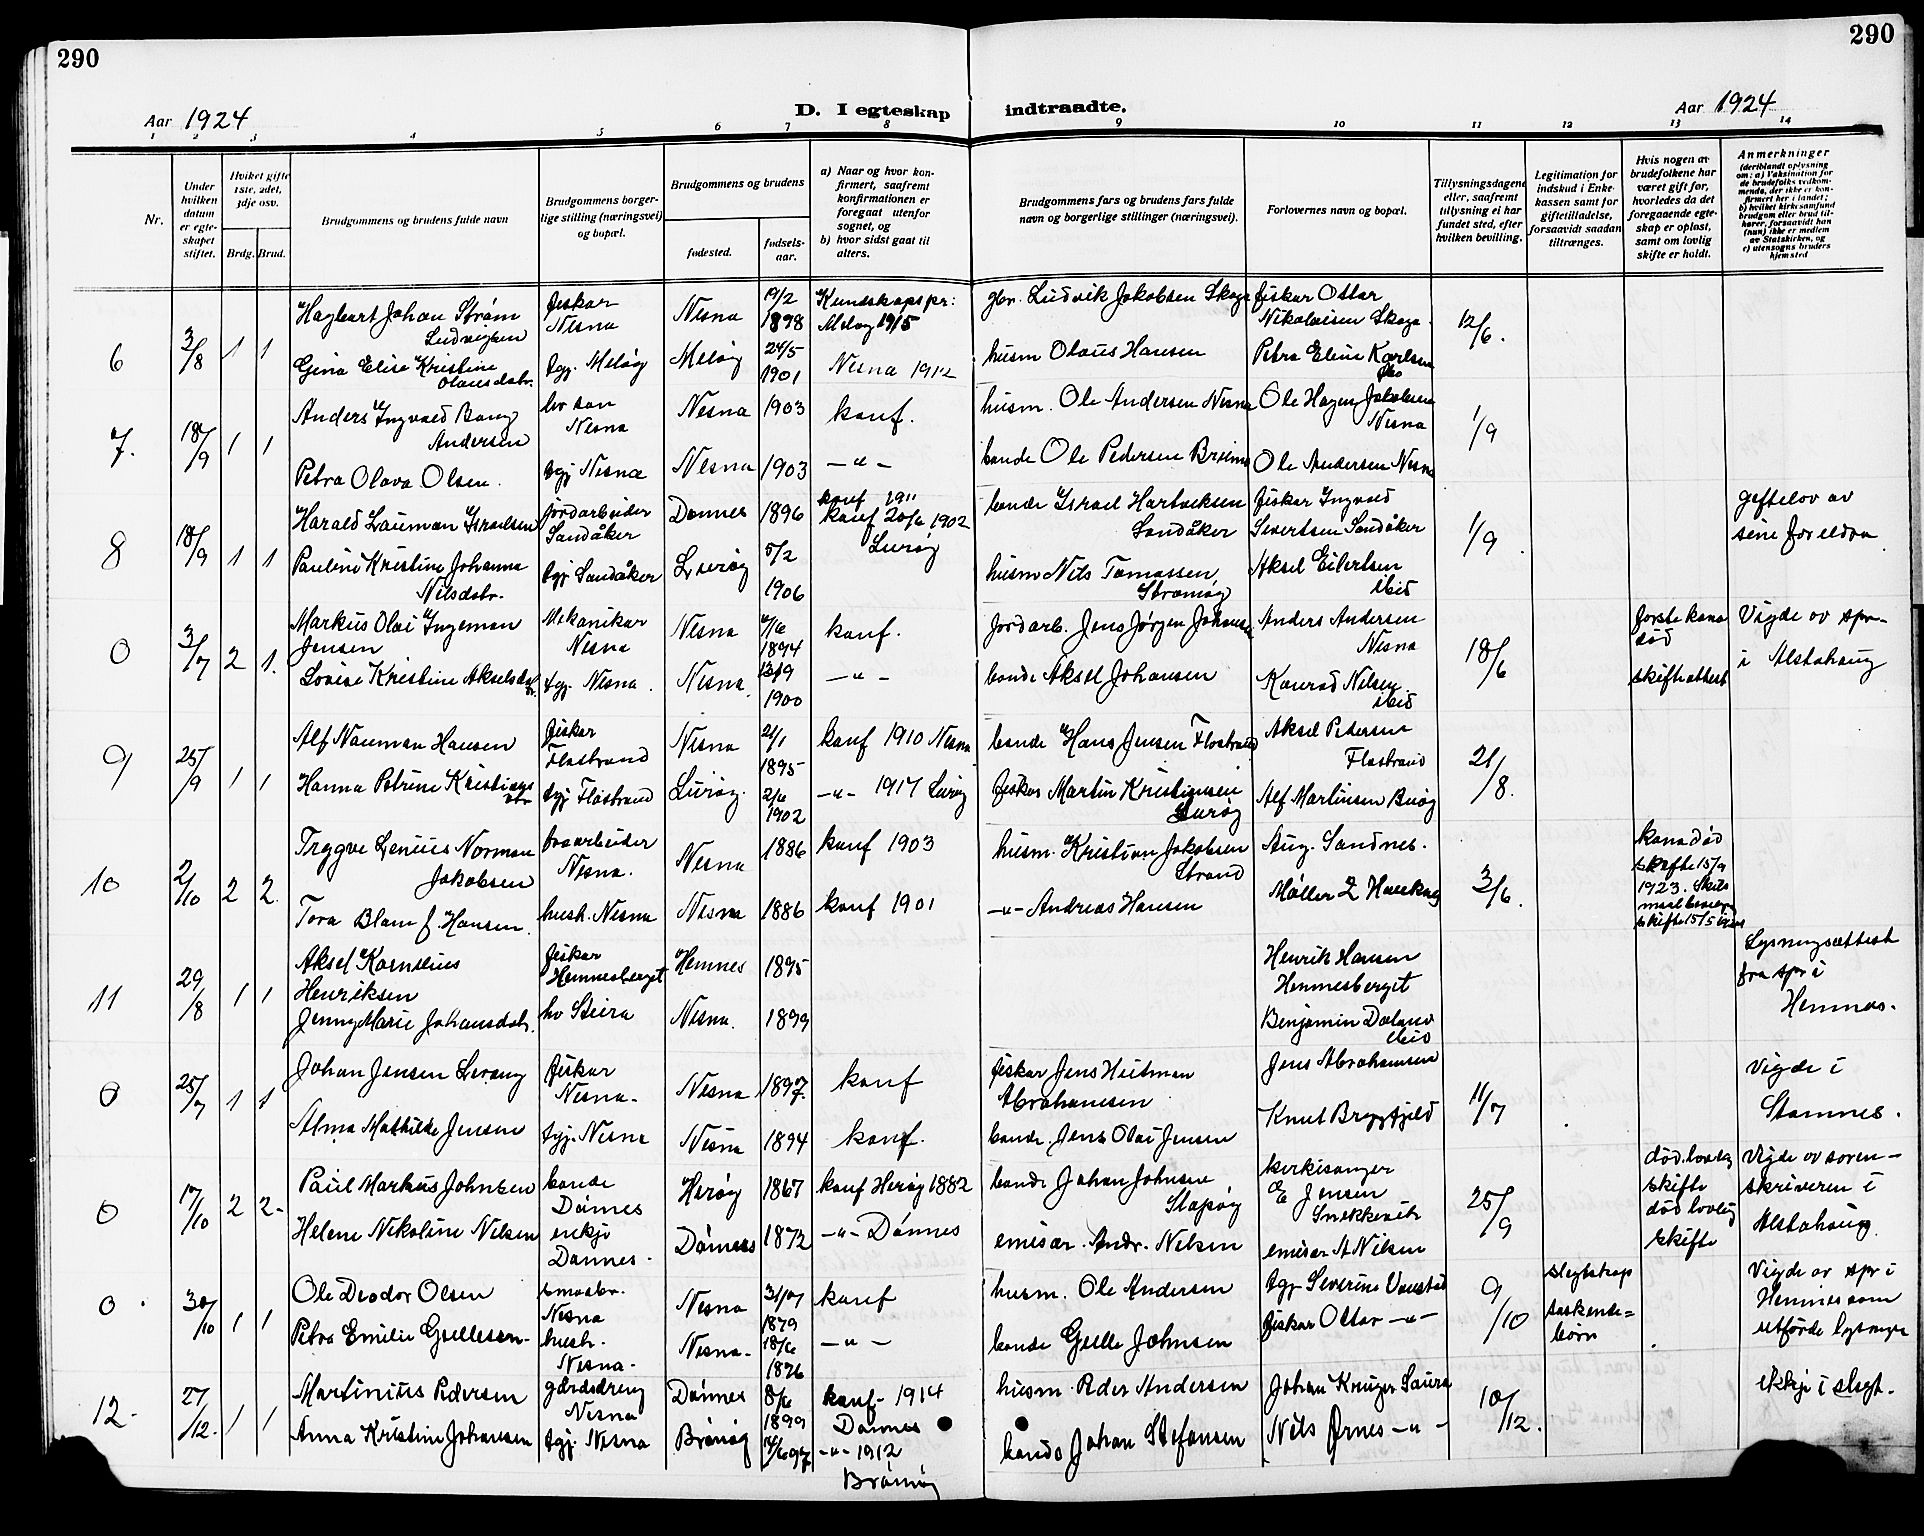 290
290
Aar 1924
D. I egteskap
indtraadte.
Aar 1924
1 2 3 4 5 6 7 8 9 10 11 12 13 14
Nr.
Under
hvilken
datum
er egte-
skapet
stiftet.
Hvilket gifte
1ste, 2det,
3dje osv.
Brdg. Brud.
Brudgommens og brudens fulde navn
Brudgommens borger-
lige stilling (næringsvei)
og bopæl.
Brudgommens og brudens
fødested.
fødsels-
aar.
a) Naar og hvor kon-
firmert, saafremt
konfirmationen er
foregaat utenfor
sognet, og
b) hvor sidst gaat til
alters.
Brudgommens fars og brudens fars fulde
navn og borgerlige stillinger (næringsvei).
Forlovernes navn og bopæl.
Tillysningsdagene
eller, saafremt
tillysning ei har
fundet sted, efter
hvilken bevilling.
Legitimation for
indskud i Enke-
kassen samt for
giftetilladelse,
forsaavidt saadan
tiltrænges.
Hvis nogen av
brudefolkene har
været gift før,
hvorledes da det
foregaaende egte-
skap er opløst,
samt om lovlig
skifte er holdt.
Anmerkninger
(deriblandt oplysning
om: a) Vaksination for
de brudefolks vedkom-
mende, der ikke er kon-
firmert her i landet;
b) hvilket kirkesamfund
brudgom eller brud til-
hører, forsaavidt han
(hun) ikke er medlem
av Statskirken, og
c) utensogns bruders
hjemsted
6 3/8 1 1
Hagbart Johan Strøm
Ludvigsen
fisker
Nesna
Nesna
19/2
1898
Kundskapspr:
Meløy 1915
gbr. Ludvik Jakobsen Skaga
fisker Ottar
Nikolaisen Skaga
12/6.
Gina Elise Kristine
Olausdatr.
tgj. Meløy
Meløy
24/5
1901
Nesna 1912
husm Olaus Hansen
Petra Eline Karlsen
7. 18/9 1 1
Anders Ingvald Bang
Andersen
Nesna
Nesna 1903 konf.
husm. Ole Andersen Nesna
Ole Hagen Jakobsen
Nesna
1/9
Petra Olava Olsen.
tgj Nesna
Nesna 1903 -"-
bonde Ole Pedersen
Ole Andersen Nesna
8 18/9 1 1
Harald Lauman Israelsen
jordarbeider
Sandåker
Dønnes 1896
konf 1911
bonde Israel Hartviksen
Sandåker
fisker Ingvald
Severtsen Sandåker
1/9
giftelov av
sine foreldra
Pauline Kristine Johanna
Nilsdatr.
tgj Sandåker
Lurøy
5/2
1906
Lurøy
husm Nils Tomassen
Strømøy
Aksel Eilertsen
ibid
0 3/7 2 1.
Markus Olai Ingeman
Jensen
Mekaniker
Nesna
Nesna
1894
konf.
Jordarb. Jens Jørgen Johansen
Anders Andersen
Nesna
18/6
første kona
død
skifteattest
Vigde av spr-
i Alstahaug
Lovise Kristine Akselsdatr.
tgj. Nesna.
Nesna.
13/9
1900
-"-
bonde Aksel Johansen
Konrad Nilsen
ibid
9 25/9 1 1
Alf Nauman Hansen
fisker
Flostrand
Nesna
21/1
1895
konf 1910 Nesna
bonde Hans Jensen Flostrand
Aksel Pedersen
Flostrand
21/8.
Hanna Petrine Kristiansdtr
tgj Flostrand
Lurøy.
2/6
1902
-"- 1917 Lurøy
fisker Martin Kristiansen
Lurøy
Alf Martinsen Buøy
10 2/10 2 2.
Trygve Lenius Norman
Jakobsen
Nesna.
Nesna
1886
konf 1903
husm. Kristian Jakobsen
Strand
Aug. Sandnes.
3/6.
kona død
skifte 15/9
1923. Skils
Tora Blam f. Hansen.
hush. Nesna
Nesna 1886 konf 1901
-"- Andreas Hansen
11 29/8 1 1
Aksel Kornelius
Henriksen
fisker
Hemnesberget
Hemnes 1895
Henrik Hansen
Hemnesberget
Lysningsattest
fra spr i
Hemnes.
Jenny Marie Johansdatr.
hv Steira
Nesna. 1899
Benjamin Dæland
ibid
0 25/7 1 1
Johan Jensen Levang
fisker
Nesna.
Nesna 1897. konf
fisker Jens Heitman
Abrahamsen
Jens Abrahamsen
11/7
Vigde i
Stamnes.
Alma Mathilde Jensen
tgj. Nesna
Nesna 1894 konf.
bonde. Jens Olai Jensen
Knut Bryggfjeld
0 17/10 2 2-
Paul Markus Johnsen
bonde
Dønnes
Herøy 1867 konf Herøy 1882
bonde Johan Johnsen
Slapøy
kirkesanger
E Jensen
Snekkevik
25/9
død. lovlig
skifte
død lovlig
skifte
Vigde av soren-
skriveren i
Alstahaug
Helene Nikoline Nilsen
enkje
Dønnes.
Dønnes 1872 -"- Dønnes
emisær. Andr. Nilsen
emisær A Nilsen
0 30/10 1 1
Ole Deodor Olsen
småbr.
Nesna
Nesna
31/7
1879
konf
husm. Ole Andersen
tgj Severine Vanstad
9/10
slegtskap
søskende=
børn
Vigde av spr i
Hemnes som
utførde lysninga
Petra Emilie Gullesen
hush.
Nesna.
Nesna.
18/6
1876
-"-
bonde Gulle Johnsen
fisker Ottar -"-
12. 27/12. 1 1
Martinius Pedersen
gårdsdreng
Nesna
Dønnes
8/6
1899
konf. 1914
Dønnes
husm. Peder Andersen
Johan Kruger Saura
10/12.
ikkje i slegt.
Anna Kristine Johansen
tgj. Nesna
Brønøy
-"- 1912
Brønnøy
bonde Johan Stefansen
Nils Ørnes -"-